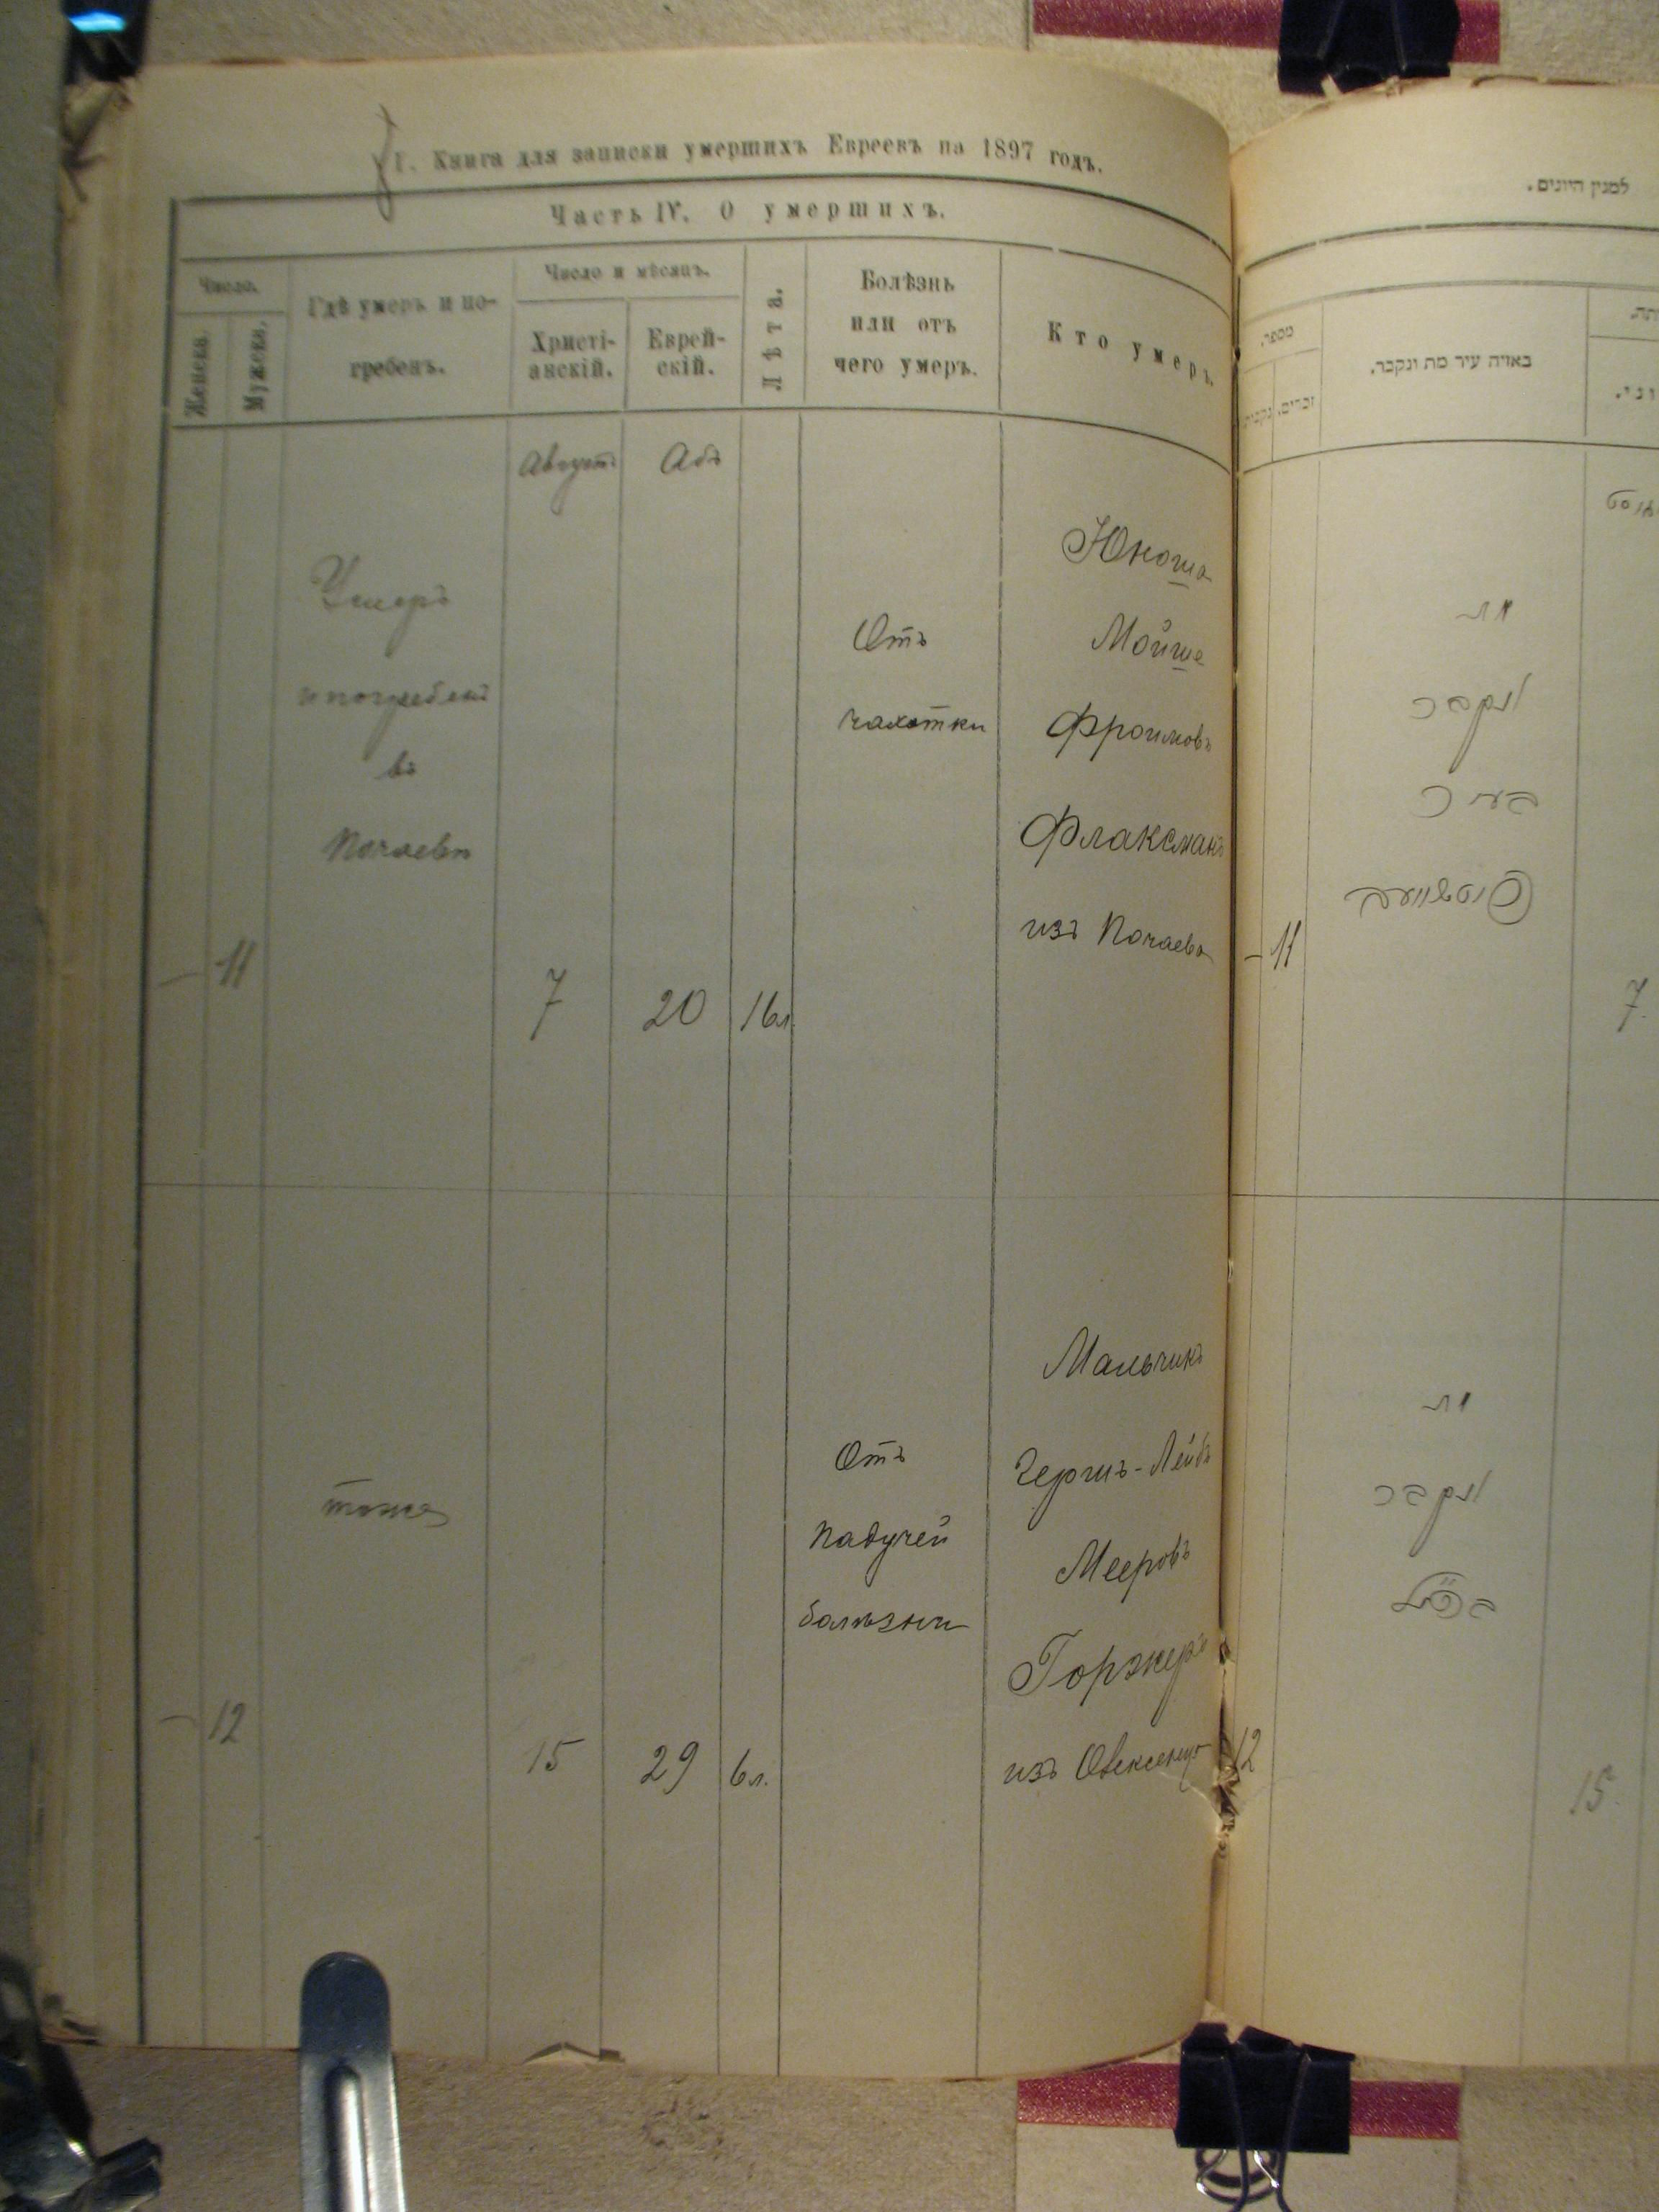 I. Книга для записки умершихъ Евреевъ на 1897 годъ.
Часть IV. О умершихъ.
Число.
Женска.
Мужска.
Гдѣ умеръ и по-
гребенъ.
Число и мѣсяцъ.
Христі-
анскій.
Еврей-
скій.
Лѣта.
Болѣзнь
или отъ
чего умеръ.
Кто умеръ.
Августъ
Абъ
Умеръ
и погребенъ
въ
Почаевѣ
– 11
7
20
16 л.
Отъ
чахотки
Юноша
Мойше
Фроимовъ
Флаксманъ
изъ Почаева
тоже
– 12
15
29
6 л.
Отъ
падучей
болѣзни
Мальчикъ
Лейбъ
Мееровъ
Горжеръ
изъ
למנין היונים.
מספר.
זכרים.
נקבות
באיזה עיר מת ונקבר.
– 11
מת
ונקבר
בעיר
7.
12
מת
ונקבר
15.